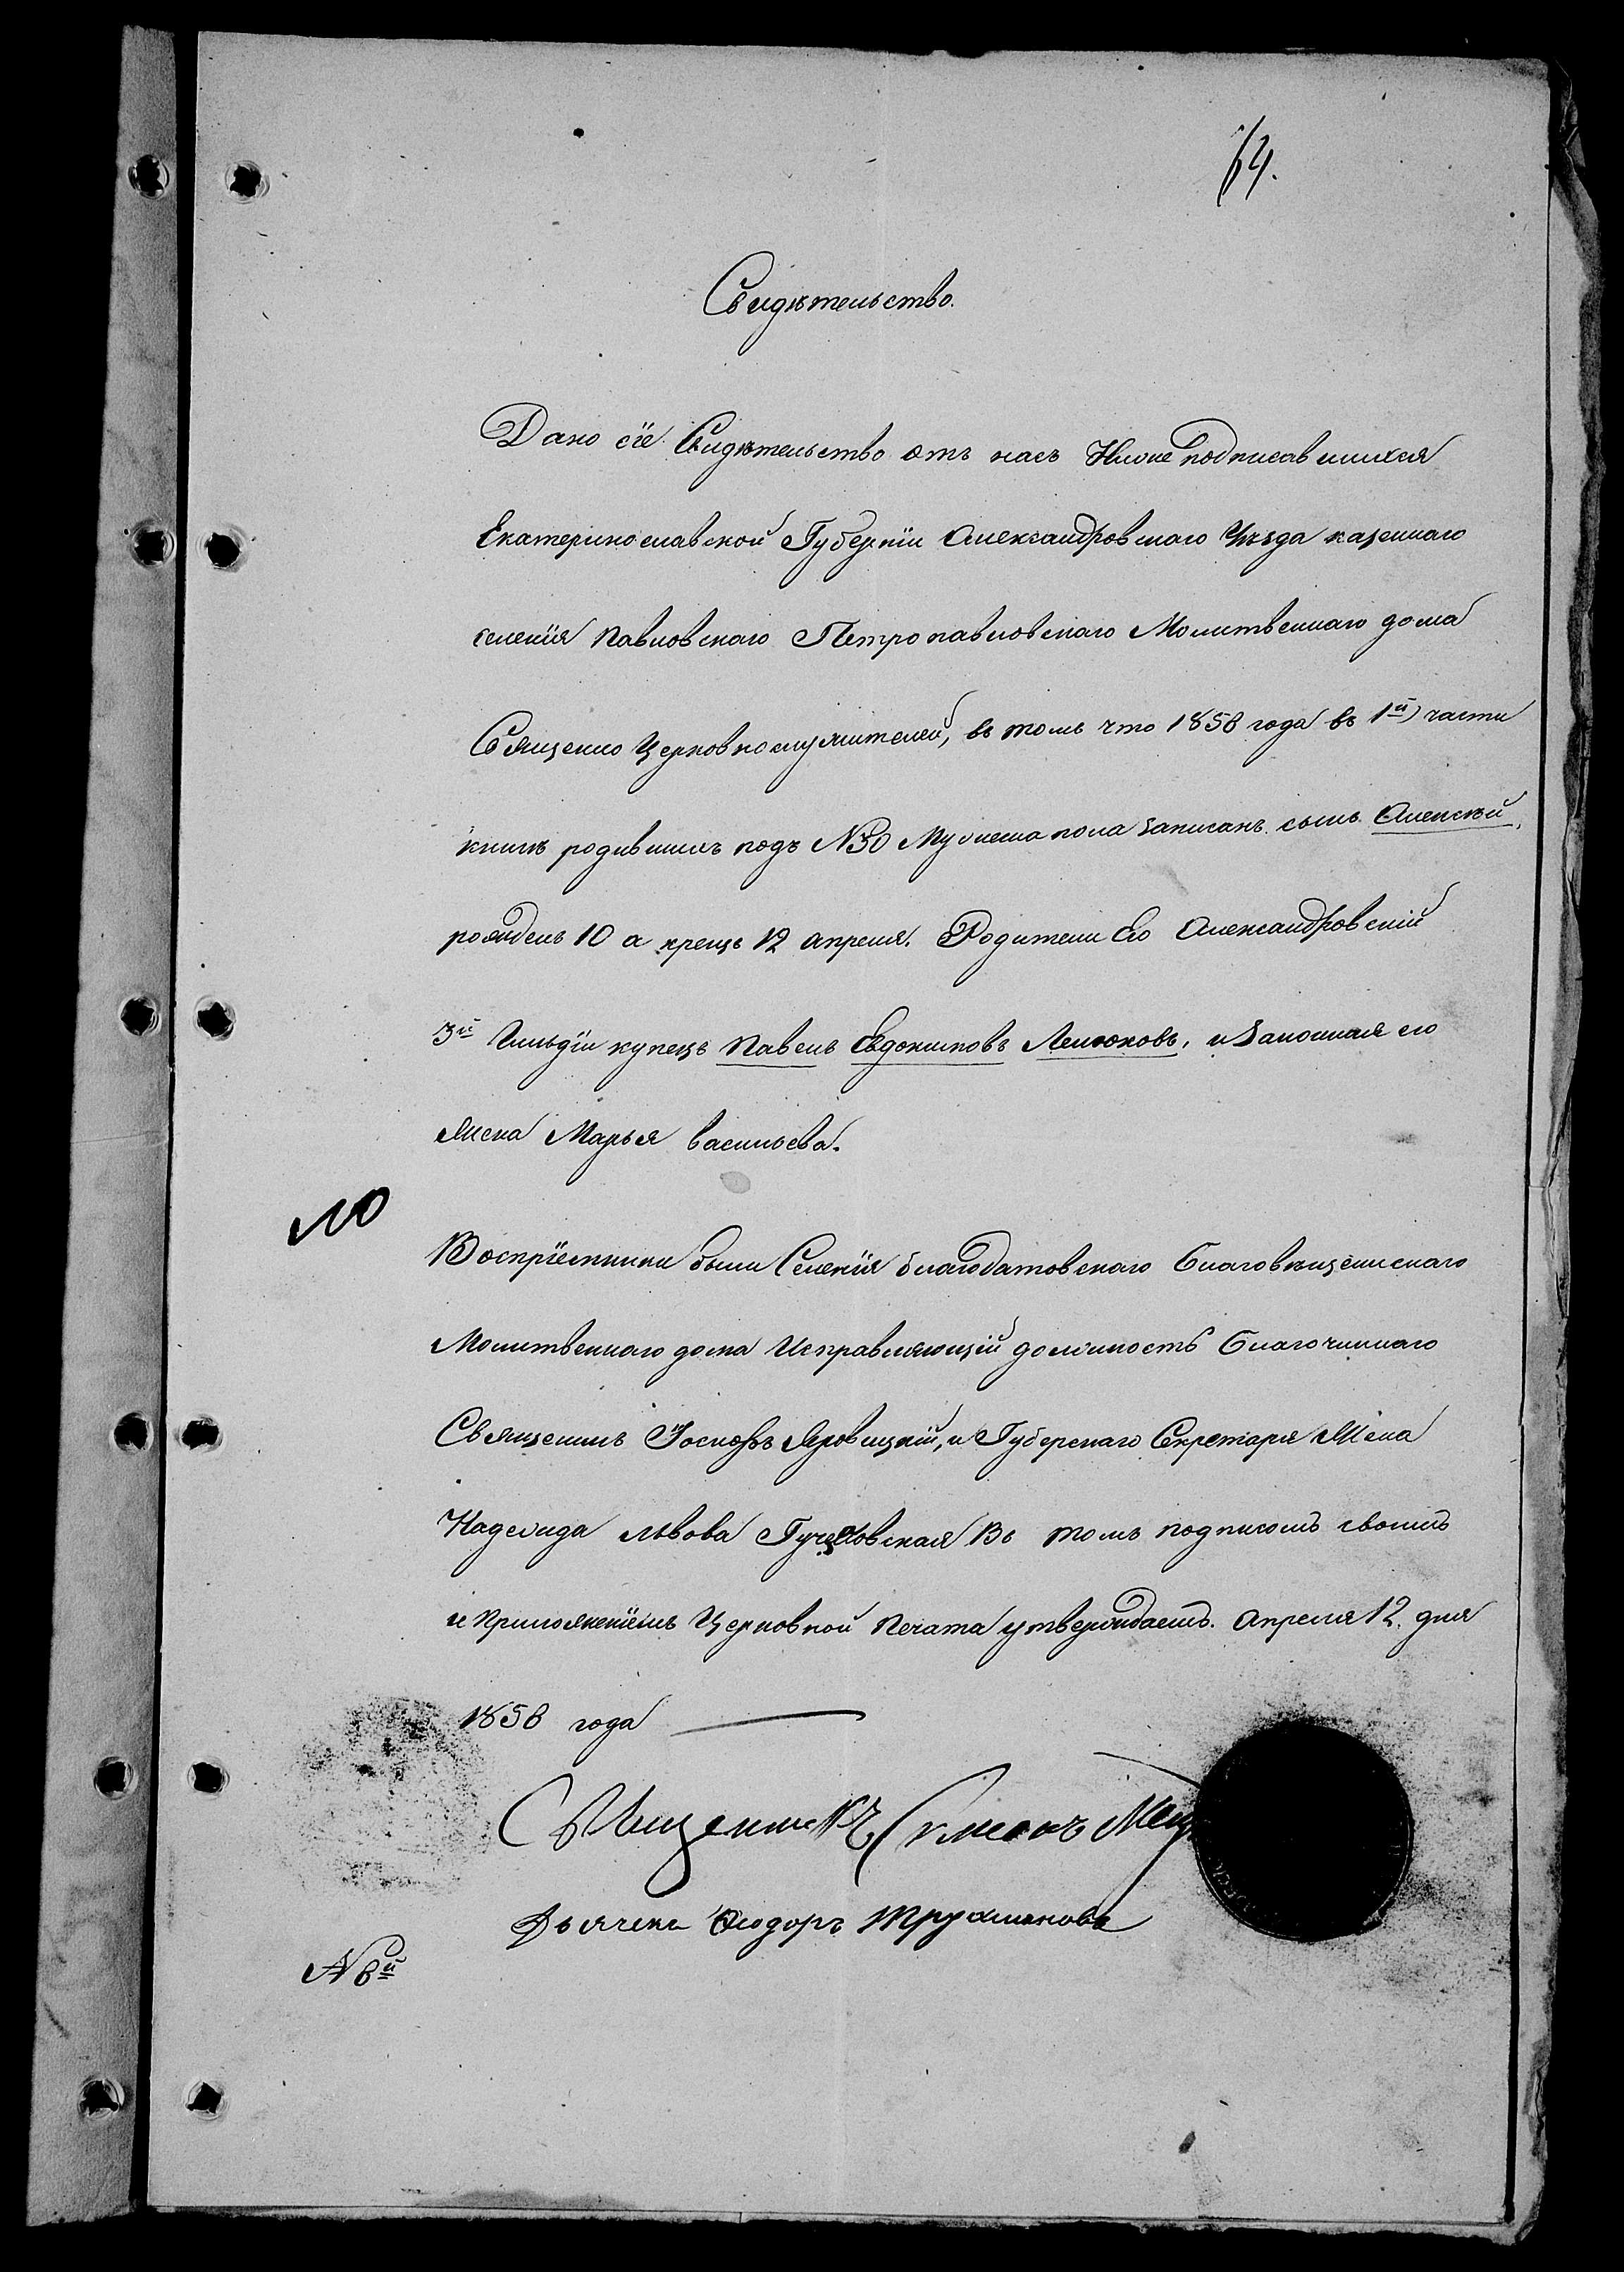 64.
Свидѣтельство.
Дано сіе Свидѣтельство отъ насъ Ниже подписавшихся
Екатеринославской Губерніи Александровскаго Уѣзда казеннаго
селенія Павловскаго Петропавловскаго Молитвеннаго дома
Священно Церковнослужителей, въ томъ что 1858 года въ 1й части
книги родившихъ подъ №30 Мужеска пола записанъ сынъ Алексѣй,
рожденъ 10 а крещъ 12 апреля. Родители Его Александровскій
3й Гильдіи купецъ Павелъ Евдокимовъ и Законная его
жена Марья Васильева.
Воспріемники были Селенія благодатовскаго Благовѣщенскаго
Молитвеннаго дома Исправляющій должность Благочиннаго
Священникъ Іосифъ Яровицкій, и Губерскаго Секретаря Жена
Надежда Львова Въ томъ подписомъ своимъ
и Приложеніемъ Церковной Печати утверждаемъ. Апреля 12. дня
1858 года
Священникъ Симеонъ
Дьячекъ Ѳеодоръ